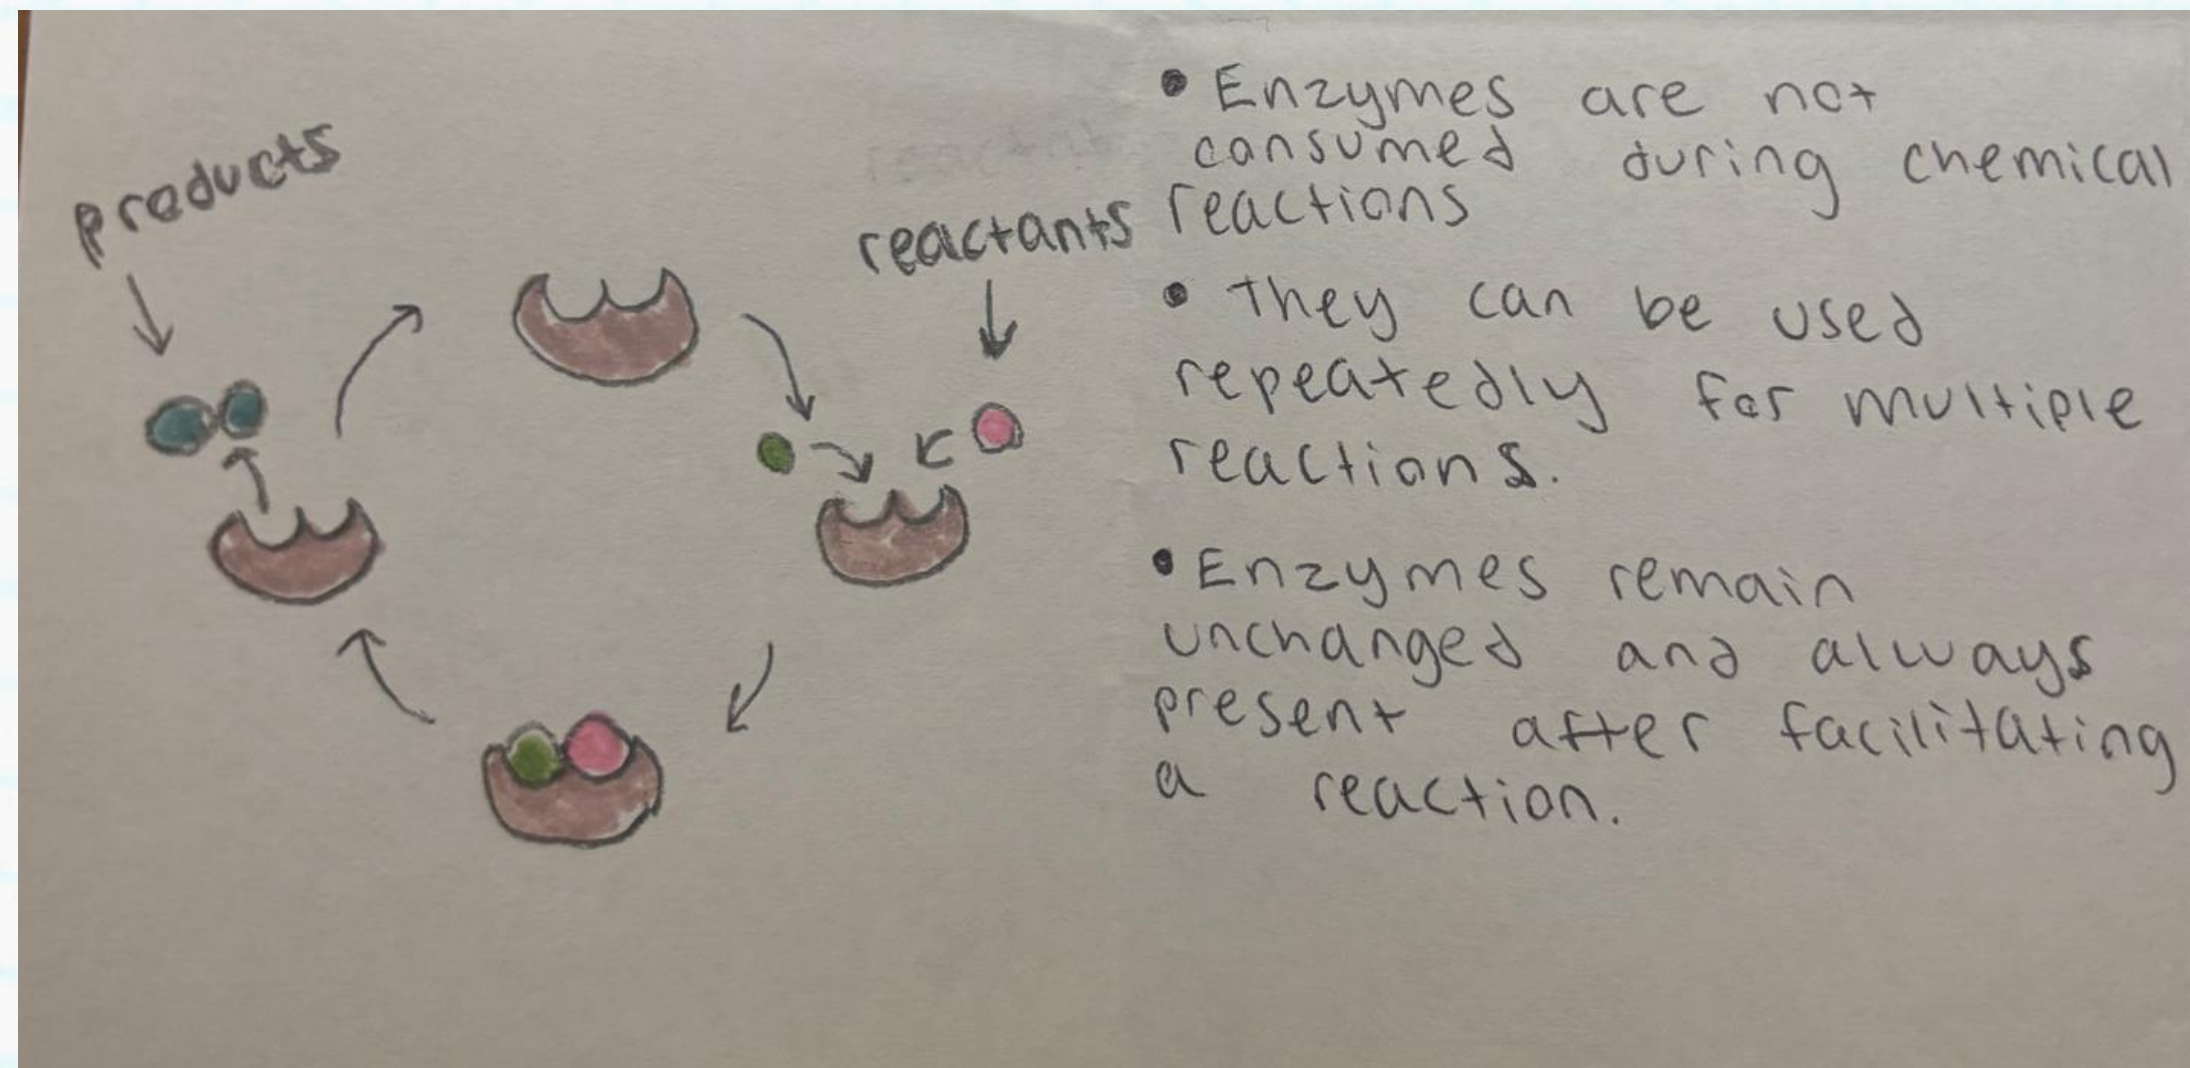 products
reactants
• Enzymes are not
consumed during chemical
reactions
• They can be used
repeatedly for multiple
reactions.
• Enzymes remain
unchanged and always
present after facilitating
a reaction.